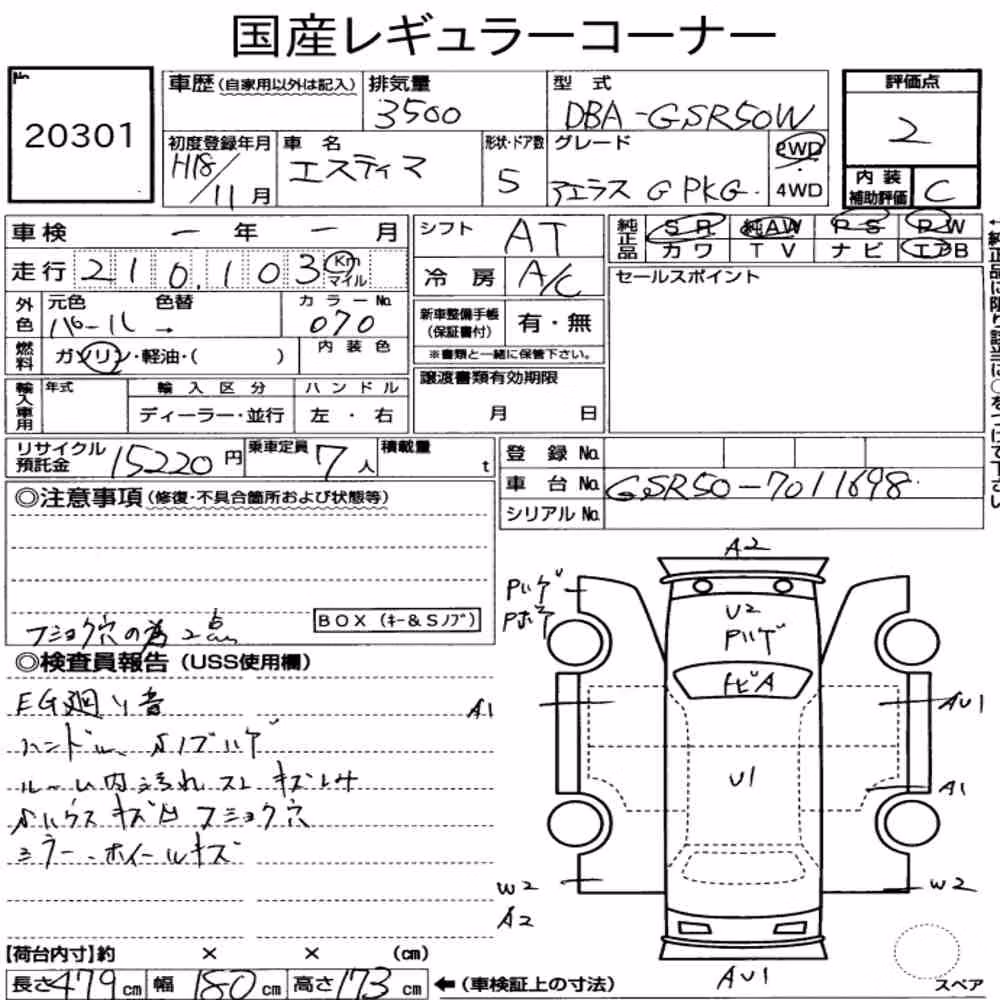 国産レギュラーコーナー
No. 20301
車歴 (自家用以外は記入) 排気量 3500 型式 DBA-GSR50W 評価点 2
初度登録年月 H18/11月 車名 エスティマ 形状・ドア数 5 グレード アエラス G PKG. 2WD 4WD
内装補助評価 C
車検 ー 年 ー 月 シフト AT 純正品 SR 純AW PS PW
カワ TV ナビ エアB
走行 210,103 Km マイル 冷房 A/C セールスポイント
←純正品に限り該当に○をつけて下さい
外色 元色 パール 色替 → カラーNo. 070 新車整備手帳(保証書付) 有・無
※書類と一緒に保管下さい。
燃料 ガソリン・軽油・( ) 内装色
譲渡書類有効期限 月 日
輸入車用 年式 輸入区分 ハンドル
ディーラー・並行 左・右
リサイクル預託金 15220円 乗車定員 7人 積載量 t
登録No.
車台No. GSR50-7011698
シリアルNo.
◎注意事項 (修復・不具合箇所および状態等)
BOX (キー&Sノブ)
フショク穴の為2点
◎検査員報告 (USS使用欄)
EG廻り音
ハンドル、Sノブハゲ
ルーム内汚れ スレ キズ レみ
Sハウス キズ凹 フショク穴
ミラー・ホイールキズ
A2
Pハゲ
Pボケ
U2
Pハゲ
トビA
A1
AU1
U1
A1
W2
A2
W2
AU1
スペア
【荷台内寸】約 × × (cm)
長さ 479 cm 幅 180 cm 高さ 173 cm ←(車検証上の寸法)